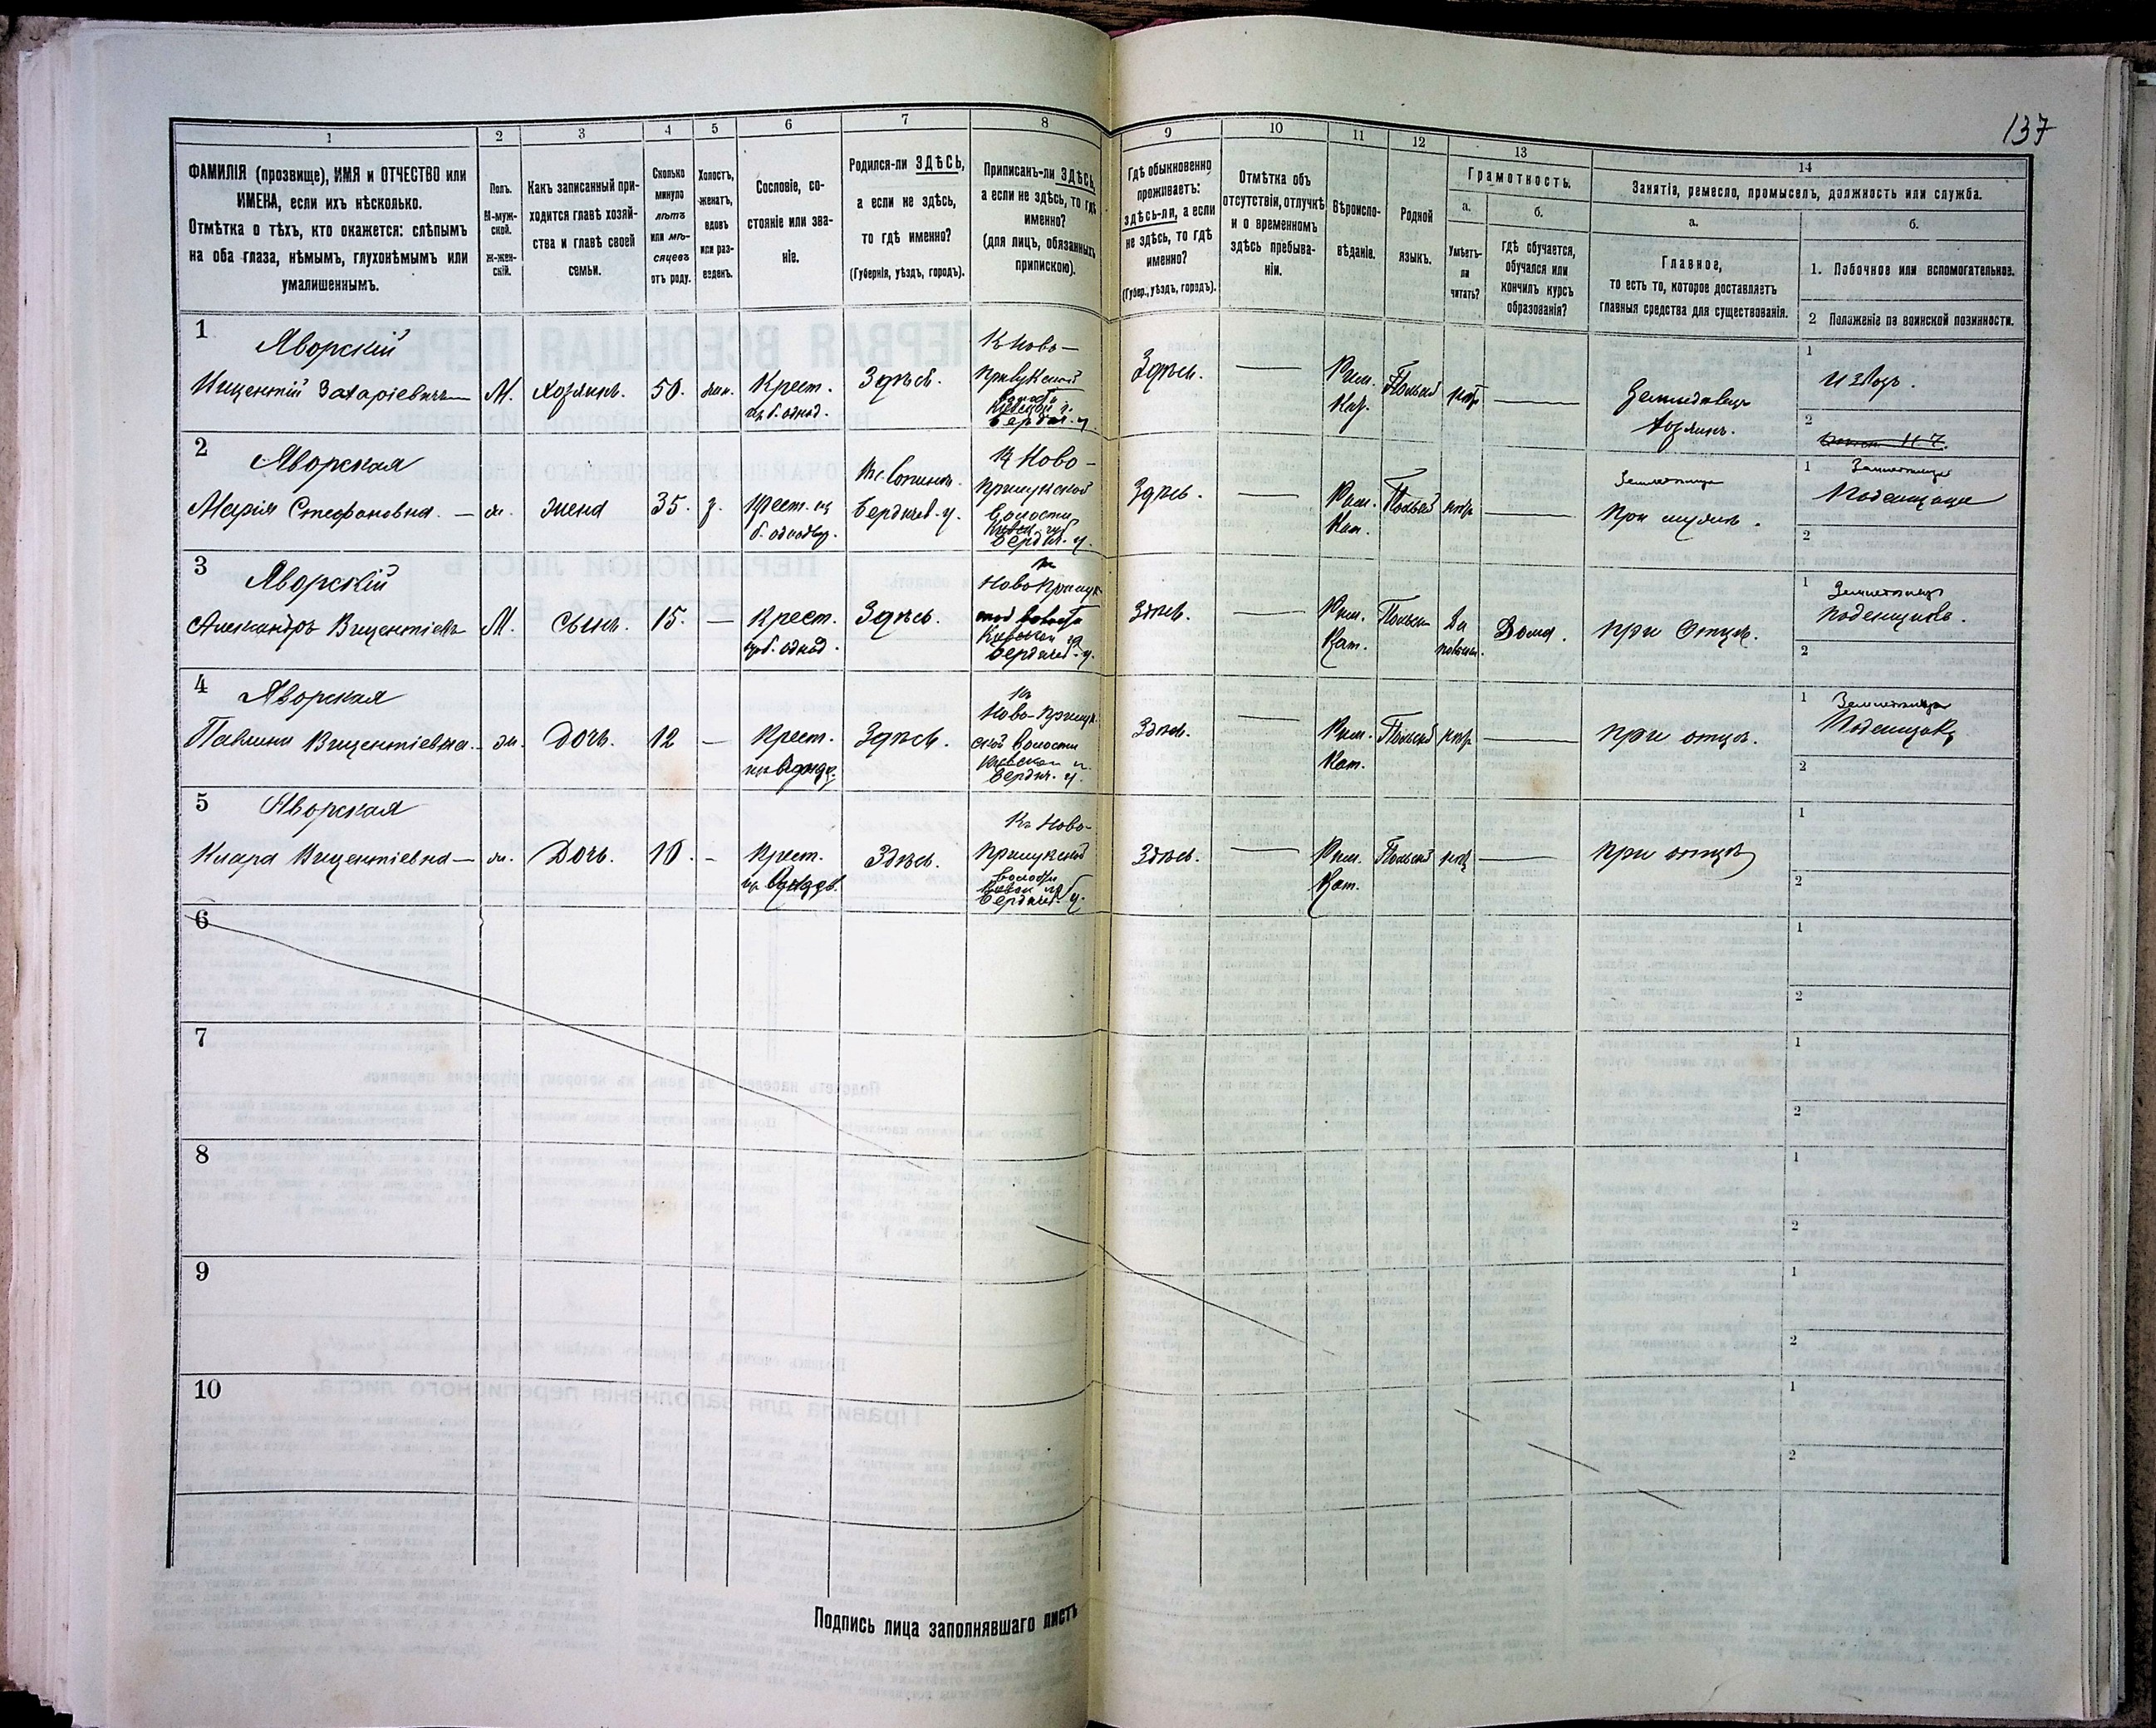 137
1
2
3
4
5
6
7
8
9
10
11
12
13
14
ФАМИЛІЯ (прозвище), ИМЯ и ОТЧЕСТВО или
ИМЕНА, если ихъ нѣсколько.
Отмѣтка о тѣхъ, кто окажется: слѣпымъ
на оба глаза, нѣмымъ, глухонѣмымъ или
умалишеннымъ.
Полъ.
М-муж-
ской.
Ж-жен-
скій.
Какъ записанный при-
ходится главѣ хозяй-
ства и главѣ своей
семьи.
Сколько
минуло
лѣтъ
или мѣ-
сяцевъ
отъ роду.
Холостъ,
женатъ,
вдовъ
или раз-
веденъ.
Сословіе, со-
стояніе или зва-
ніе.
Родился-ли ЗДѢСЬ,
а если не здѣсь,
то гдѣ именно?
(Губернія, уѣздъ, городъ).
Приписанъ-ли ЗДѢСЬ,
а если не здѣсь, то гдѣ
именно?
(для лицъ, обязанныхъ
припискою).
Гдѣ обыкновенно
проживаетъ:
здѣсь-ли, а если
не здѣсь, то гдѣ
именно?
(Губер., уѣздъ, городъ).
Отмѣтка объ
отсутствіи, отлучкѣ
и о временномъ
здѣсь пребыва-
ніи.
Вѣроиспо-
вѣданіе.
Родной
языкъ.
Грамотность.
а.
Умѣетъ-
ли
читать?
б.
гдѣ обучается,
обучался или
кончилъ курсъ
образованія?
Занятіе, ремесло, промыселъ, должность или служба.
а.
Главное,
то есть то, которое доставляетъ
главныя средства для существованія.
б.
1. Побочное или вспомогательное.
2 Положеніе по воинской повинности.
1
Яворскій
Вицентій Захаріевичъ М. Хозяинъ. 50. жен. Крест. Здѣсь.
из б. однод.
Къ Ново-
Бердич. у.
Здѣсь. — Рим. Польскій —
Кат.
Хозяинъ.
1
Извоз.
2
2
Яворская
Марія Стефановна. — ж. жена 35. з. Крест. из
б. однодвор.
Бердичев. у.
Къ Ново-
Прилукской
Волости
Бердич. у.
Здѣсь. — Рим. Польскій —
Кат.
При мужѣ.
1
Поденщица
2
3
Яворскій
Александръ Вицентіевъ М. Сынъ. 15. — Крест. Здѣсь.
из б. однод.
Ново Прилук
Бердичев. у.
Здѣсь. — Рим. Польскій Да Дома. При Отцѣ.
Кат.
1
Поденщикъ.
2
4
Яворская
Павлина Вицентіевна. ж. Дочь. 12 — Крест. Здѣсь.
Ново-Прилук
ской Волости
Кіевской г.
Бердич. у.
Здѣсь. — Рим. Польскій — При отцѣ.
Кат.
1
2
5
Яворская
Клара Вицентіевна — ж. Дочь. 10. — Крест. Здѣсь.
Къ Ново-
Прилукской
Волости
Бердичев. у.
Здѣсь. — Рим. Польскій — При отцѣ
Кат.
1
2
6
1
2
7
1
2
8
1
2
9
1
2
10
1
2
Подпись лица заполнявшаго листъ